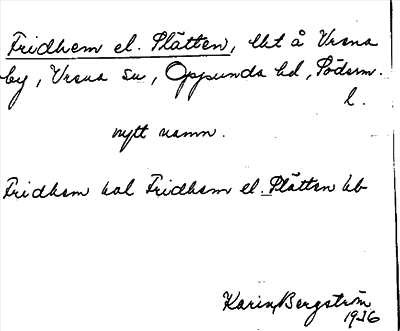 Fridhem el. Plätten, lht å Vrena
by, Vrena sn, Oppunda hd, Söderm.
l.
nytt namn.
Fridhem kal Fridhem el. Plätten kb
Karin Bergström
1936